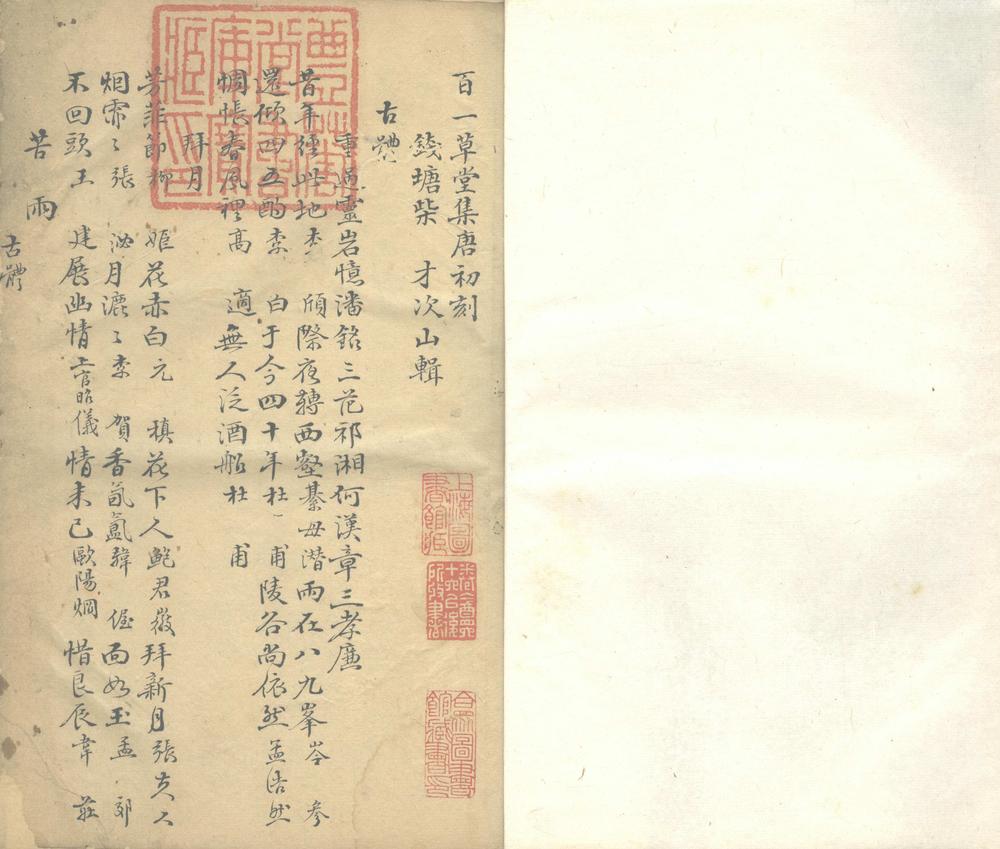 百一草堂集唐初刻
錢塘柴 才次山輯
古體
重過靈岩憶潘銘三范祁湘何漢章三孝廉
昔年經此地李 頎際夜轉西壑綦毋潛雨在八九峯岑 參
還傾四五酌李 白于今四十年杜 甫陵谷尚依然孟浩然
惆悵春風裡高 適無人泛酒船杜 甫
拜月
芳菲節柳 姬花赤白元 稹花下人鮑君徽拜新月張夫人
烟霏〻張 泌月漉〻李 賀香氤氳韓 偓面如玉孟 郊
不回頭王 建展幽情上官昭儀情未已歐陽炯惜良辰韋 莊
苦雨
古體
上海圖書館藏
合眾圖書館藏書印